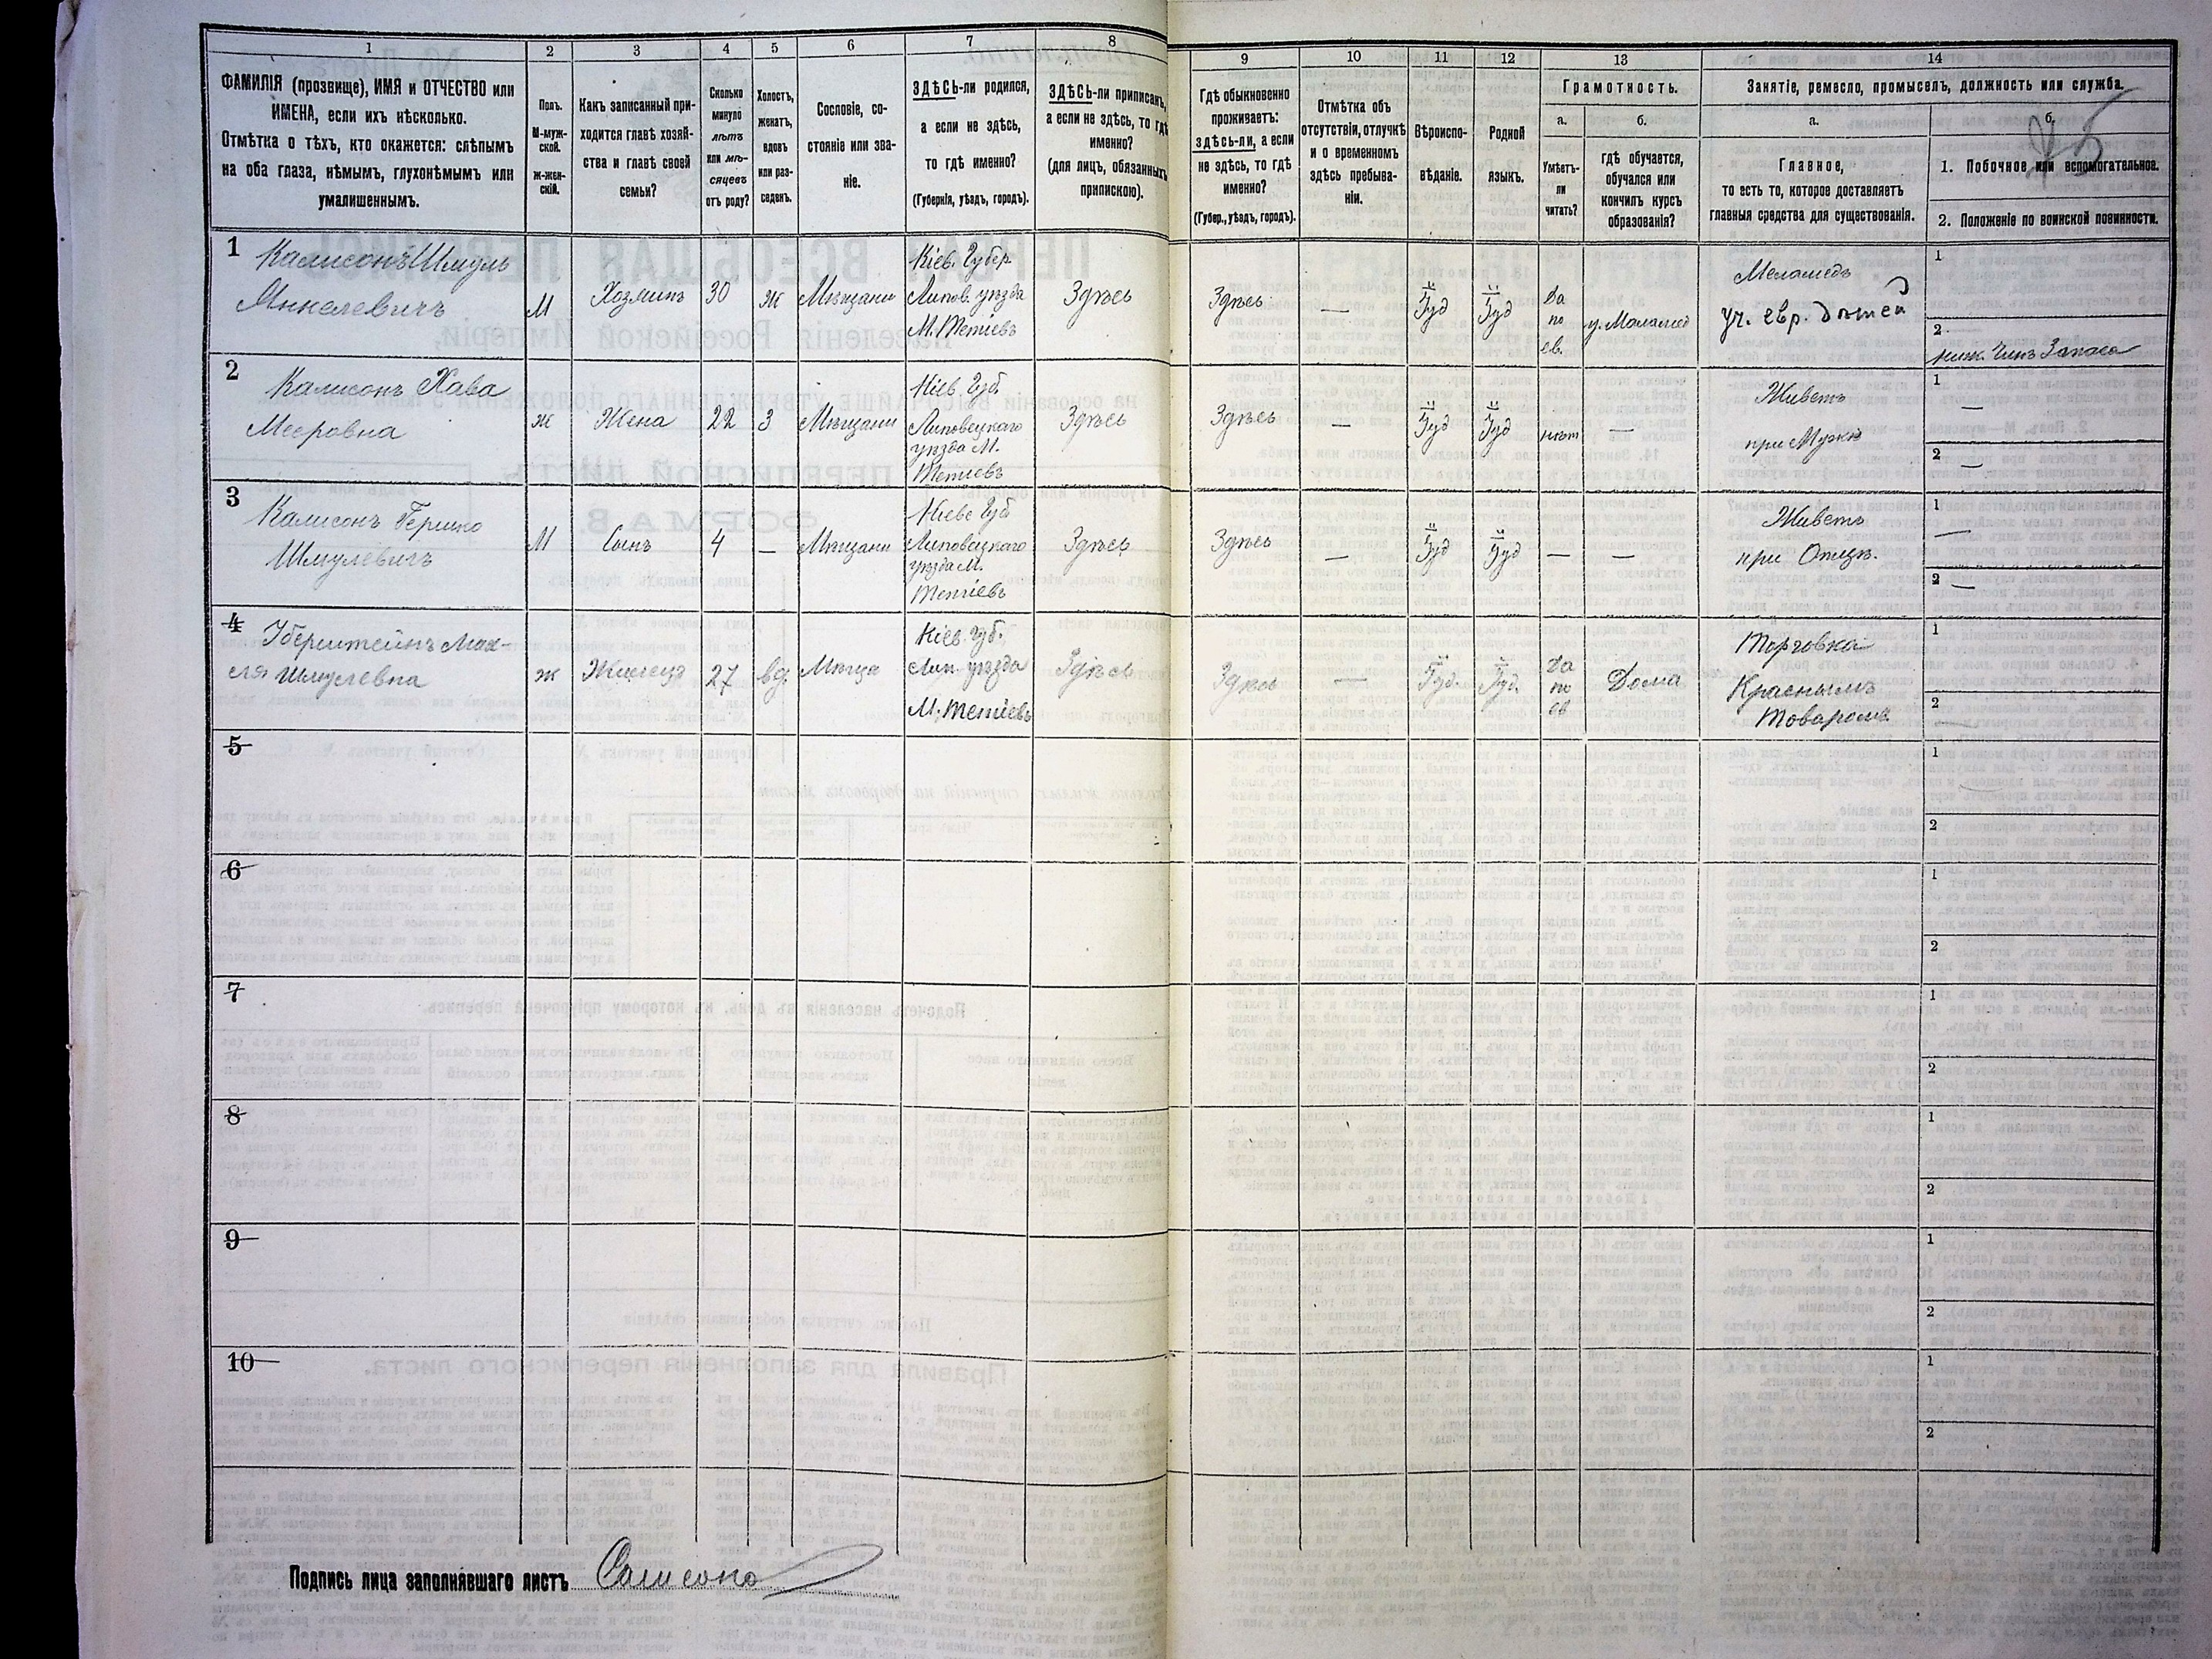 1
2
3
4
5
6
7
8
9
10
11
12
13
14
ФАМИЛІЯ (прозвище), ИМЯ и ОТЧЕСТВО или
ИМЕНА, если ихъ нѣсколько.
Отмѣтка о тѣхъ, кто окажется: слѣпымъ
на оба глаза, нѣмымъ, глухонѣмымъ или
умалишеннымъ.
Полъ.
М-муж-
ской.
ж-жен-
скій.
Какъ записанный при-
ходится главѣ хозяй-
ства и главѣ своей
семьи?
Сколько
минуло
лѣтъ
или мѣ-
сяцевъ
отъ роду?
Холостъ,
женатъ,
вдовъ
или раз-
веденъ.
Сословіе, со-
стояніе или зва-
ніе.
ЗДѢСЬ-ли родился,
а если не здѣсь,
то гдѣ именно?
(Губернія, уѣздъ, городъ).
ЗДѢСЬ-ли приписанъ,
а если не здѣсь, то гдѣ
именно?
(для лицъ, обязанныхъ
припискою).
Гдѣ обыкновенно
проживаетъ:
здѣсь-ли, а если
не здѣсь, то гдѣ
именно?
(Губер., уѣздъ, городъ).
Отмѣтка объ
отсутствіи, отлучкѣ
и о временномъ
здѣсь пребыва-
ніи.
Вѣроиспо-
вѣданіе.
Родной
языкъ.
Грамотность.
а.
Умѣетъ-
ли
читать?
б.
гдѣ обучается,
обучался или
кончилъ курсъ
образованія?
Занятіе, ремесло, промыселъ, должность или служба.
а.
Главное,
то есть то, которое доставляетъ
главныя средства для существованія.
б.
1. Побочное или вспомогательное.
2. Положеніе по воинской повинности.
1
Калисонъ Шмуль
Янкелевичъ
М
Хозяинъ
30
ж
Мѣщани
Кіев. Губер.
Липов. уѣзда
М. Тетіевъ
Здѣсь
Здѣсь
—
Іуд
Іуд
Да
по
ев.
у. Меламед
Меламедъ
уч. евр. дѣтей
1
2
ниж. Чинъ Запаса
2
Калисонъ Хава
Мееровна
ж
Жена
22
З
Мѣщани
Кіев. Губ.
Липовецкаго
уѣзда М.
Тетіевъ
Здѣсь
Здѣсь
—
Іуд
Іуд
нѣт
—
Живетъ
при Мужѣ
1
—
2
—
3
Калисонъ Гершко
Шмулевичъ
М
Сынъ
4
—
Мѣщани
Кіевс Губ
Липовецкаго
уѣзда М.
Тетіевъ
Здѣсь
Здѣсь
—
Іуд
Іуд
—
—
Живетъ
при Отцѣ.
1
—
2
—
4
Мах-
ля Шмулевна
ж
27
вд.
Мѣща
Кіев. Губ.
Лип. уѣзда
М. Тетіевъ
Здѣсь
Здѣсь
—
Іуд.
Іуд.
Да
по
ев
Дома
Торговка
Краснымъ
Товаромъ
1
2
5
1
2
6
1
2
7
1
2
8
1
2
9
1
2
10
1
2
Подпись лица заполнявшаго листъ